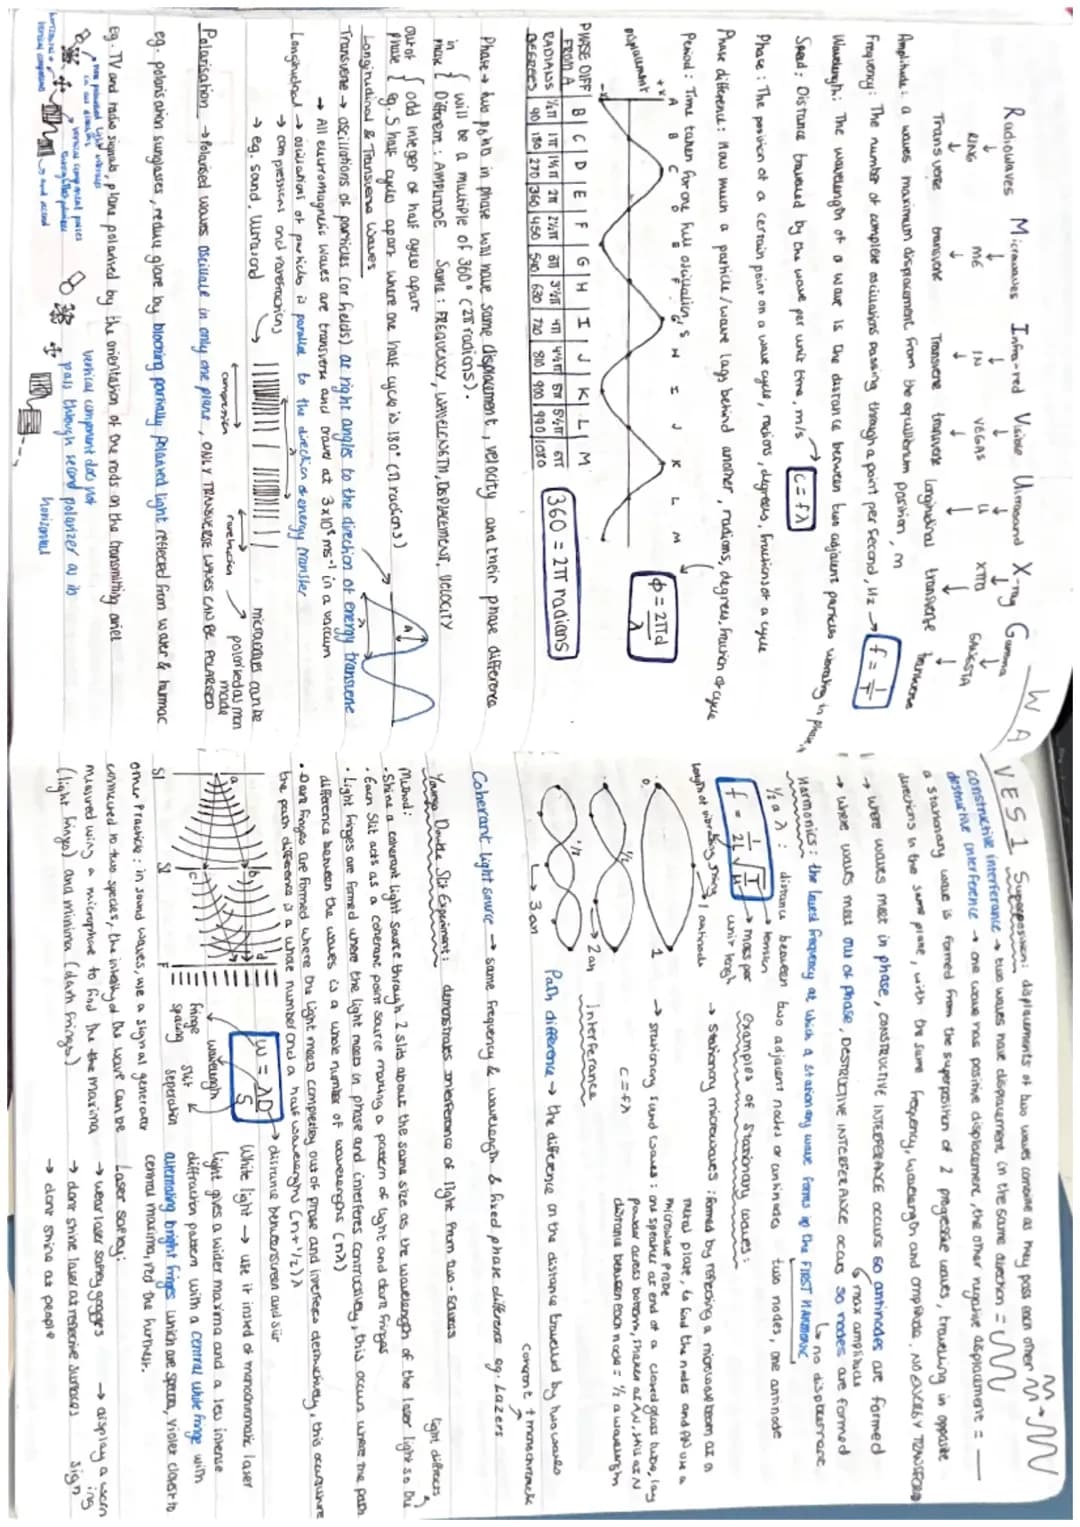 WAVES 1
Radiowaves Microwaves Infra-red Visible Ultrasound X-ray Gamma
RING ME IN VEGAS U XTRA GANGSTA
Transverse transverse Transverse transverse longitudinal transverse transverse
Amplitude: a waves maximum displacement from the equilibrium position, m
Frequency: The number of complete oscillations passing through a point per second, Hz → f = 1/T
Wavelength: The wavelength of a wave is the distance between two adjacent particles vibrating in phase, m
Speed: Distance travelled by the wave per unit time, m/s → c = fλ
Phase: The position of a certain point on a wave cycle, radians, degrees, fractions of a cycle
Phase difference: How much a particle/wave lags behind another, radians, degrees, fraction of cycle
Period: Time taken for one full oscillation, s
ϕ = 2πd/λ
+x
A B C D E F G H I J K L M
displacement
-x
PHASE DIFF FROM A | B | C | D | E | F | G | H | I | J | K | L | M
RADIANS ½π 1π 1½π 2π 2½π 3π 3½π 4π 4½π 5π 5½π 6π
DEGREES 90 180 270 360 450 540 630 720 810 900 990 1080
360 = 2π radians
Phase → two points in phase will have same displacement, velocity and their phase difference
in phase { will be a multiple of 360° (2π radians).
Different: AMPLITUDE Same: FREQUENCY, WAVELENGTH, DISPLACEMENT, VELOCITY
out of phase { odd integer of half cycles apart
eg. 5 half cycles apart where one half cycle is 180° (π radians)
Longitudinal & Transverse Waves
Transverse → oscillations of particles (or fields) at right angles to the direction of energy transverse
→ All electromagnetic waves are transverse and travel at 3x10⁸ ms⁻¹ in a vacuum
Longitudinal → oscillations of particles is parallel to the direction of energy transfer
→ compressions and rarefactions
→ eg. sound, ultrasound
compression
rarefraction
A
λ
microwaves can be polarised as man made
Polarisation → Polarised waves oscillate in only one plane, ONLY TRANSVERSE WAVES CAN BE POLARISED
eg. polarisation sunglasses, reduce glare by blocking partially polarised light reflected from water & tarmac
eg. TV and radio signals, plane polarised by the orientation of the rods on the transmitting ariel
vertical component does not
pass through second polarizer as its
horizontal
Superposition: displacements of two waves combine as they pass each other
constructive interference → two waves have displacement in the same direction =
destructive interference → one wave has positive displacement, the other negative displacement =
a stationary wave is formed from the superposition of 2 progressive waves, travelling in opposite
directions in the same plane, with the same frequency, wavelength and amplitude. NO ENERGY TRANSFERED
→ where waves meet in phase, CONSTRUCTIVE INTERFERANCE occurs so antinodes are formed
↳ max amplitude
→ where waves meet out of phase, DESTRUCTIVE INTERFERANCE occurs so nodes are formed
↳ no displacement
Harmonics: the lowest frequency at which a stationary wave forms is the FIRST HARMONIC
½ a λ: distance between two adjacent nodes or antinodes - two nodes, one antinode
f = 1/2l √T/μ
→ tension
→ mass per unit length
length of vibrating string
1 antinode
examples of stationary waves:
→ stationary microwaves: formed by reflecting a microwave beam at a
metal plate, to find the nodes and AN use a
microwave probe
→ stationary sound waves: one speaker at end of a closed glass tube, lay
powder across bottom, shaken at AN, still at N
distance between each node = ½ a wavelength
c = fλ
2 an
3 an
Interferance
Path difference → the difference in the distance travelled by two waves
Coherant light source → same frequency & wavelength & fixed phase difference eg. Lazers
Coherent + monochromatic
Youngs Double Slit Experiment: demonstrates interferance of light from two-sources
Method:
light diffracts
• Shine a coherent light source through 2 slits about the same size as the wavelength of the laser light so the
• Each slit acts as a coherent point source making a pattern of light and dark fringes
• Light fringes are formed where the light meets in phase and interferes constructively, this occurs where the path
difference between the waves is a whole number of wavelengths (nλ)
• Dark fringes are formed where the light meets completely out of phase and interferes destructively, this occurs where
the path difference is a whole number and a half wavelengths (n+½)λ
S1 S2 F
a b c d
fringe spacing
w = λD/s
→ distance between screen and slit
wavelength
slit seperation
White light → use it instead of monochromatic laser
light gives a wider maxima and a less intense
diffraction pattern with a central white fringe with
alternating bright fringes which are spectra, violet closest to
central maxima, red the furthest.
other Practice: in sound waves, use a signal generator
connected to two speakers, the intensity of the wave can be
measured using a microphone to find the the maxima
(light fringe) and minima (dark fringe)
Laser safety:
→ wear laser safety goggles → display a warning sign
→ dont shine laser at reflective surfaces
→ dont shine at people